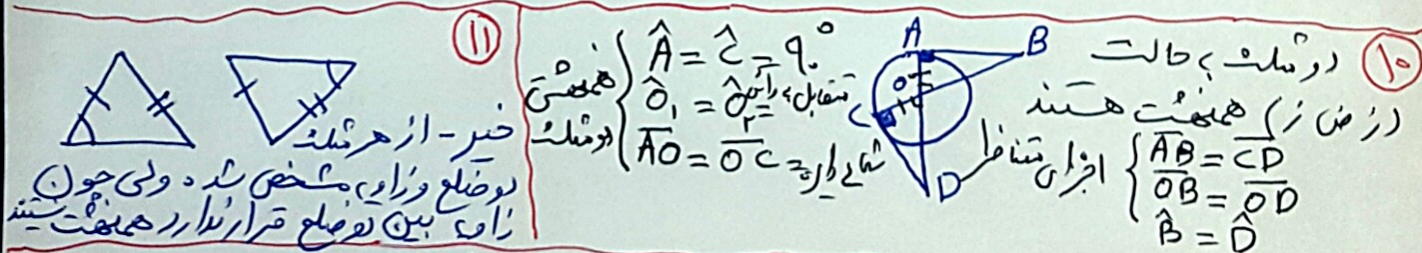 ۱۰
دو مثلث به حالت
(ز ض ز) همنهشت هستند
اجزای متناظر
AB = CD
OB = OD
B̂ = D̂
A B
O
۱ ۲
C
D
همنهشتی دو مثلث
Â = Ĉ = ۹۰°
متقابل به رأس Ô₁ = Ô₂
شعاع دایره = AO = OC
۱۱
خیر - از هر مثلث
دو ضلع و زاویه مشخص شده ولی چون
زاویه بین دو ضلع قرار ندارد همنهشت نیستند